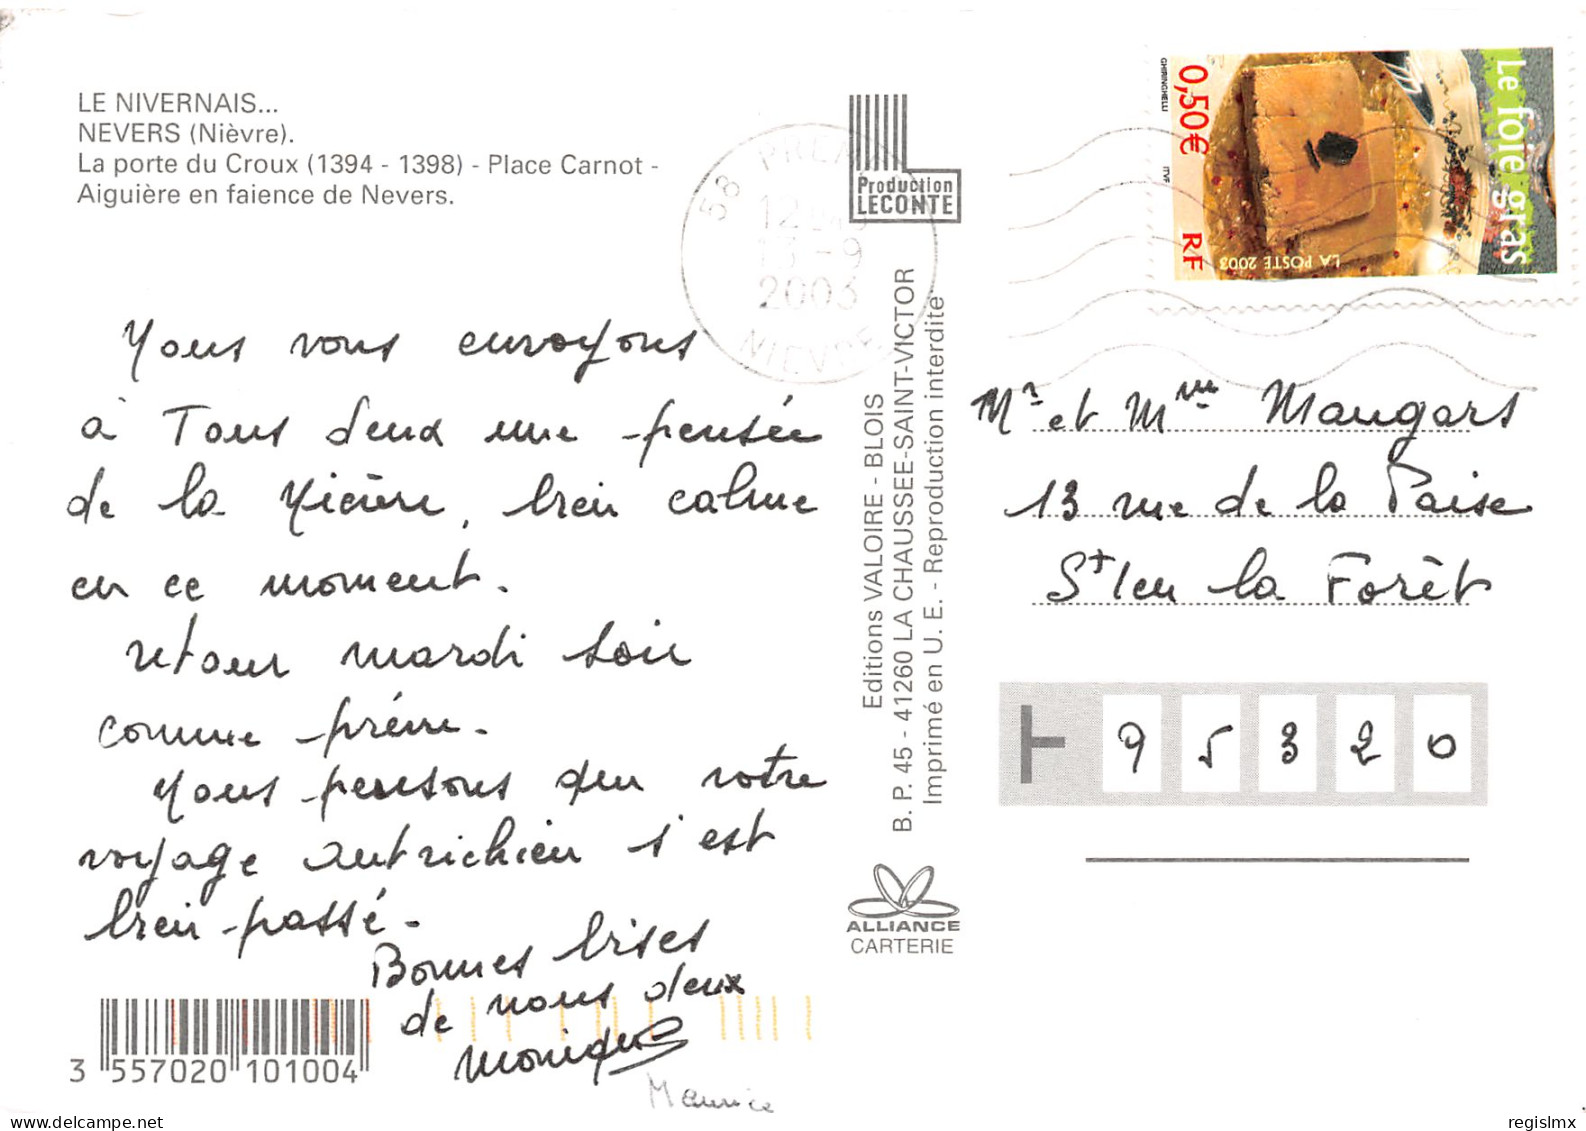 LE NIVERNAIS...
NEVERS (Nièvre).
La porte du Croux (1394 - 1398) - Place Carnot -
Aiguière en faience de Nevers.
Nous vous envoyons
à Tous deux une pensée
de la Nièvre, bien calme
en ce moment.
retour mardi soir
comme prévu.
Nous pensons que votre
voyage autrichien s'est
bien passé.
Bonnes bises
de nous deux
Monique
Maurice
3 557020 101004
58 PREM
2003
NIEVRE
Production
LECONTE
Editions VALOIRE - BLOIS
B. P. 45 - 41260 LA CHAUSSEE-SAINT-VICTOR
Imprimé en U. E. - Reproduction interdite
ALLIANCE
CARTERIE
Le foie gras
0,50 €
RF
LA POSTE 2003
GHIRINGHELLI
ITVF
Mr et Mme Maugars
13 rue de la Paise
St leu la Forêt
95320
regislmx